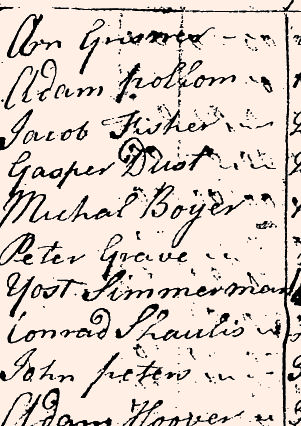 Adam pollom
Jacob Fisher
Gasper Dust
Michal Boyer
Peter Grave
Yost Simmerman
Conrad Shaulis
John peters
Adam Hoover